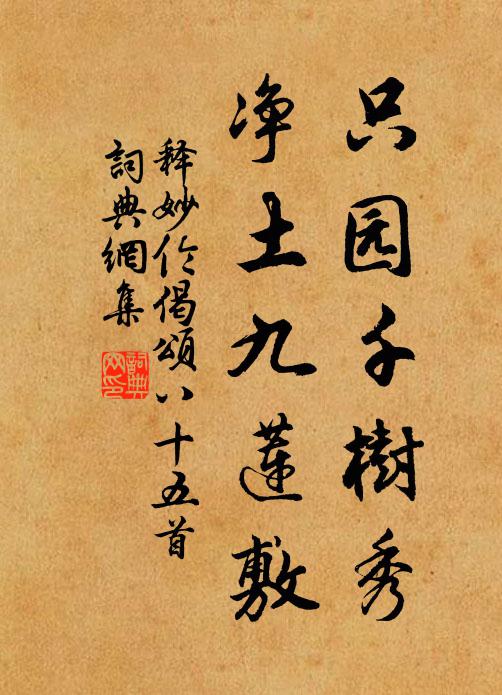 只园千树秀
净土九莲敷
释妙伦偈颂八十五首
詞典網集
詞典
网印